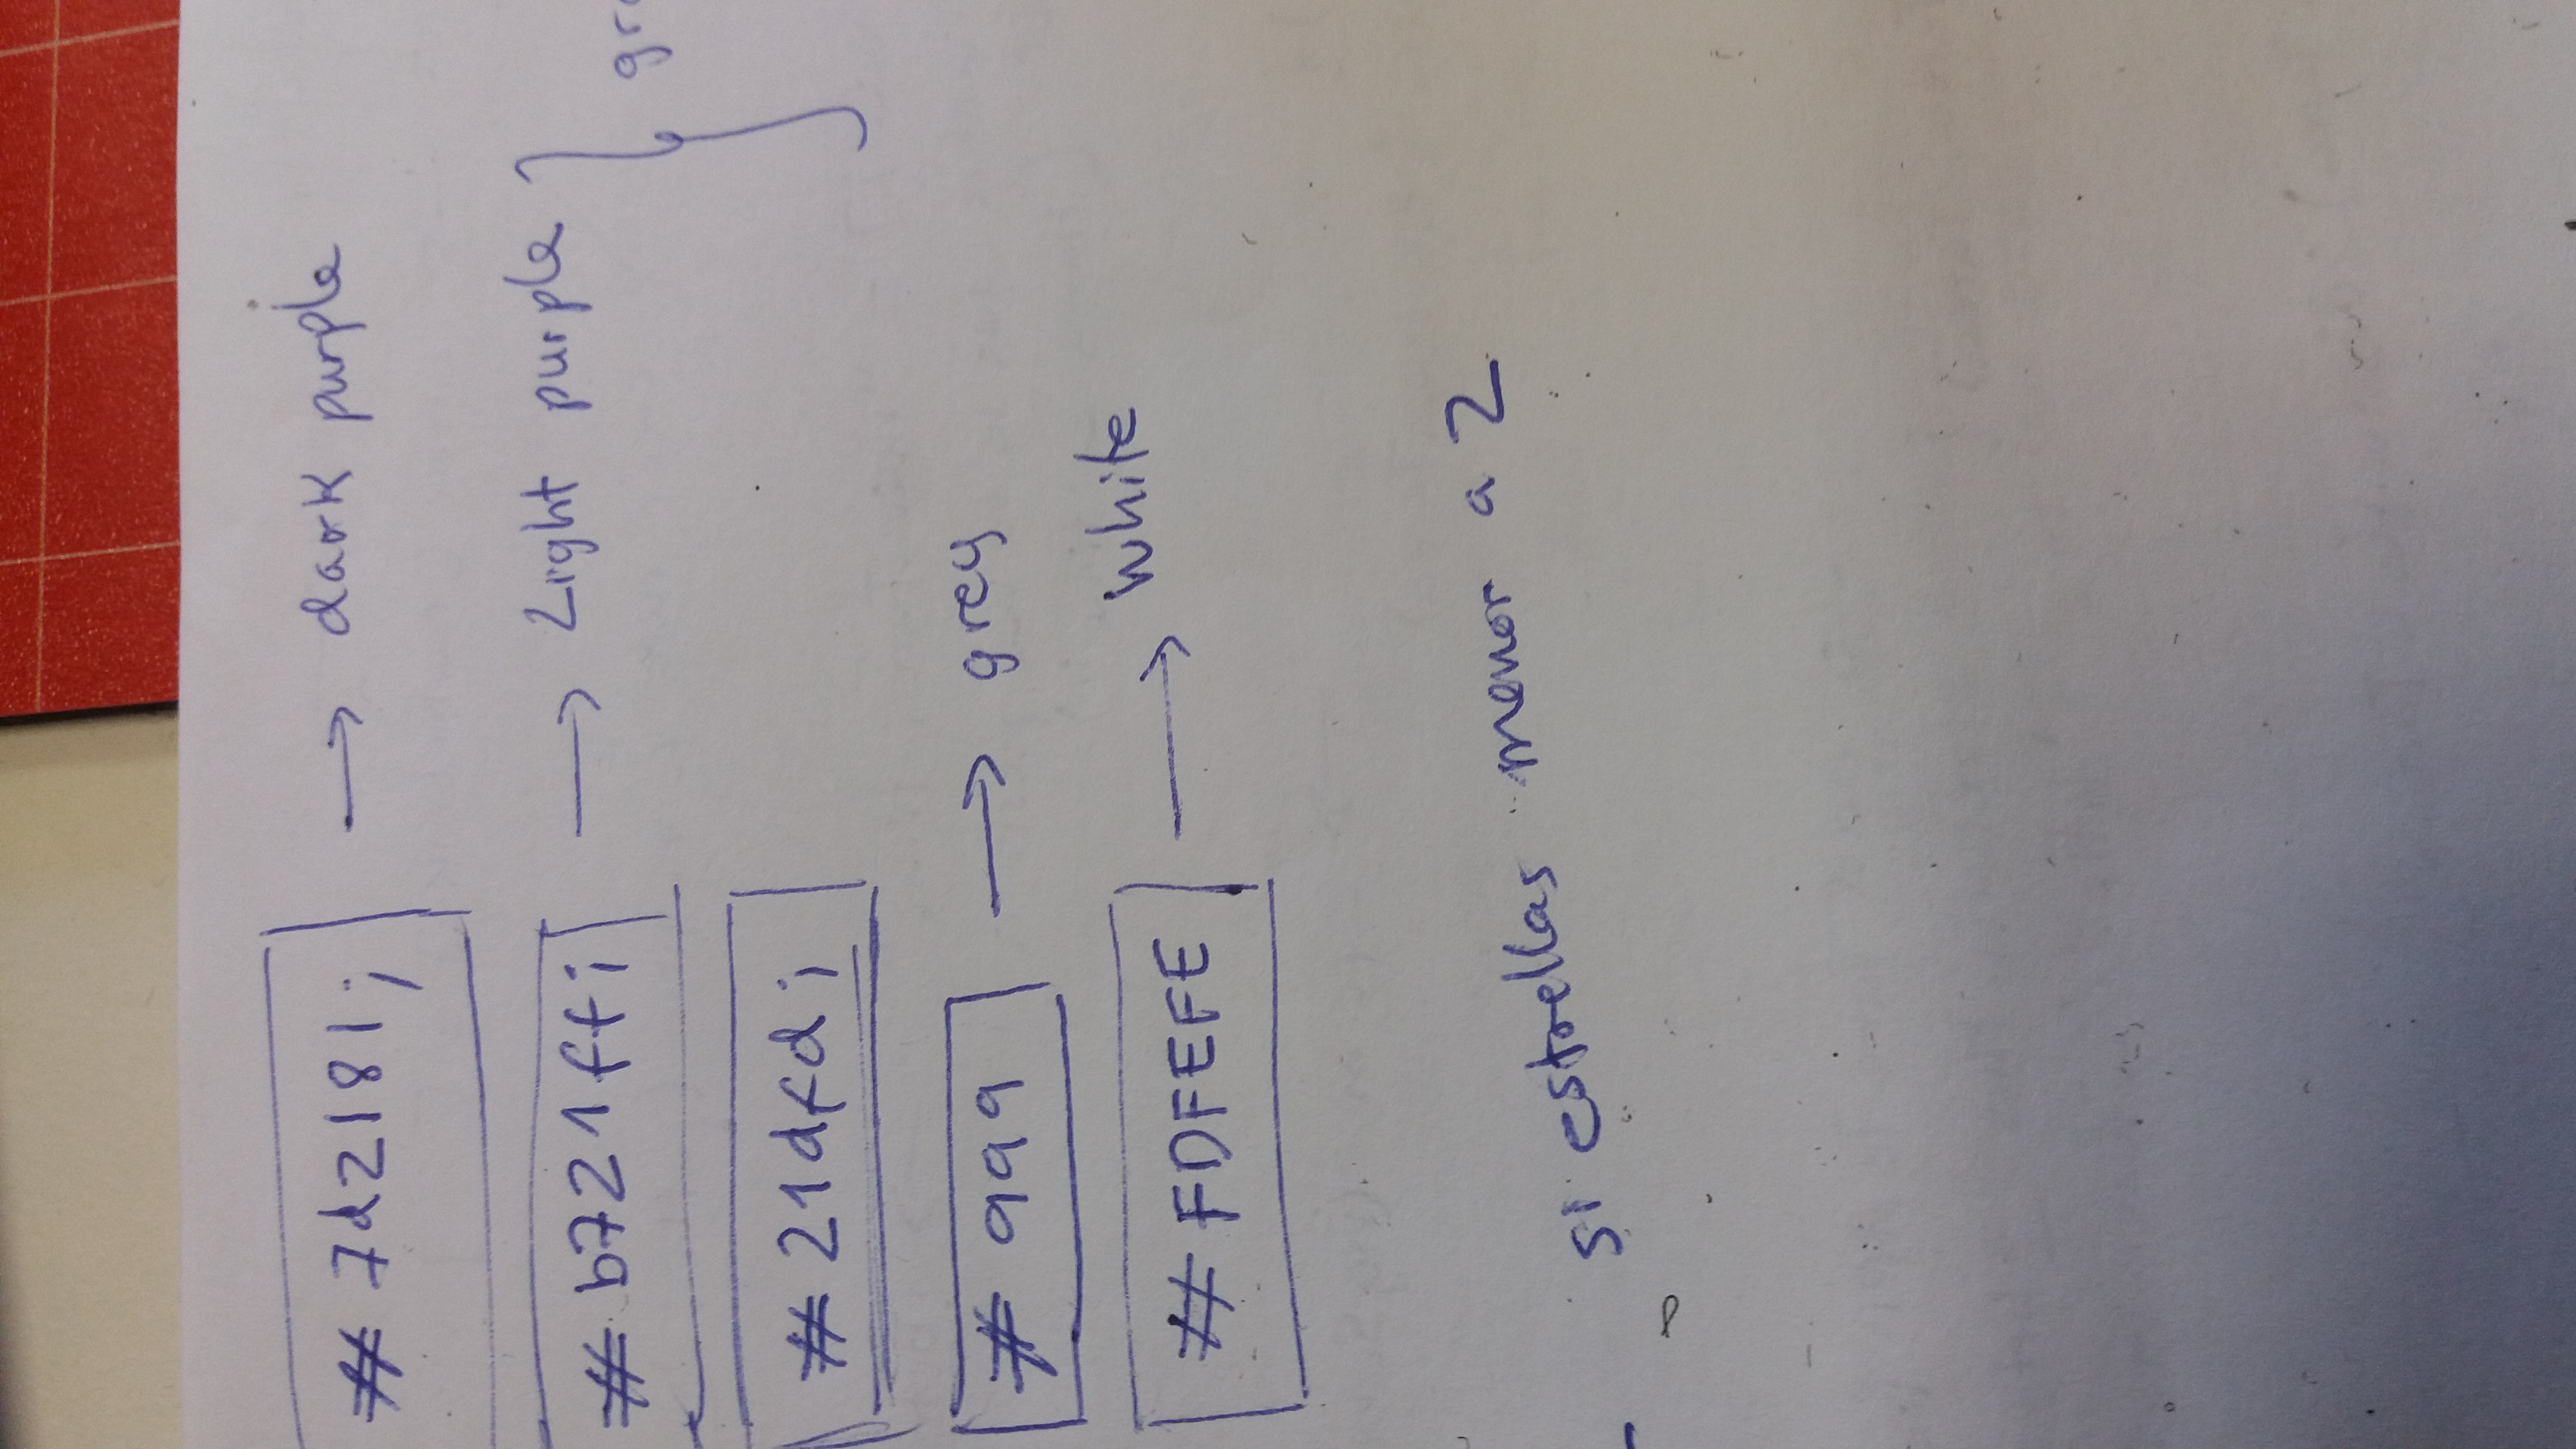 #7d2181; → dark purple
#b721ff; → Light purple
#21dfd;
#999 → grey
#FDFEFE → white
si estrellas menor a 2